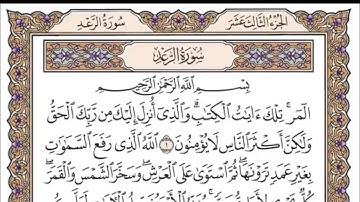 الجزء الثالث عشر
سورة الرعد
سورة الرعد
بسم الله الرحمن الرحيم
الٓمٓرۚ تِلۡكَ ءَايَٰتُ ٱلۡكِتَٰبِۗ وَٱلَّذِيٓ أُنزِلَ إِلَيۡكَ مِن رَّبِّكَ ٱلۡحَقُّ
وَلَٰكِنَّ أَكۡثَرَ ٱلنَّاسِ لَا يُؤۡمِنُونَ ١ ٱللَّهُ ٱلَّذِي رَفَعَ ٱلسَّمَٰوَٰتِ
بِغَيۡرِ عَمَدٖ تَرَوۡنَهَاۖ ثُمَّ ٱسۡتَوَىٰ عَلَى ٱلۡعَرۡشِۖ وَسَخَّرَ ٱلشَّمۡسَ وَٱلۡقَمَرَۖ